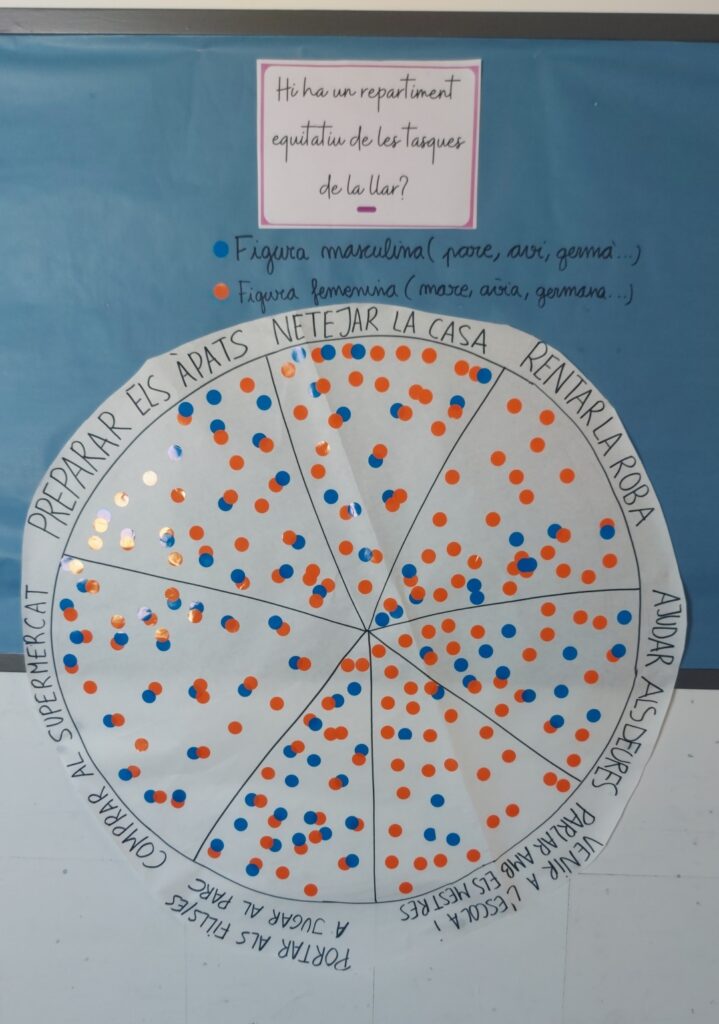 Hi ha un repartiment
equitatiu de les tasques
de la llar?
Figura masculina (pare, avi, germà...)
Figura femenina (mare, àvia, germana...)
NETEJAR LA CASA
RENTAR LA ROBA
AJUDAR ALS DEURES
VENIR A L'ESCOLA I
PARLAR AMB ELS MESTRES
PORTAR ALS FILLS/ES
A JUGAR AL PARC
COMPRAR AL SUPERMERCAT
PREPARAR ELS ÀPATS